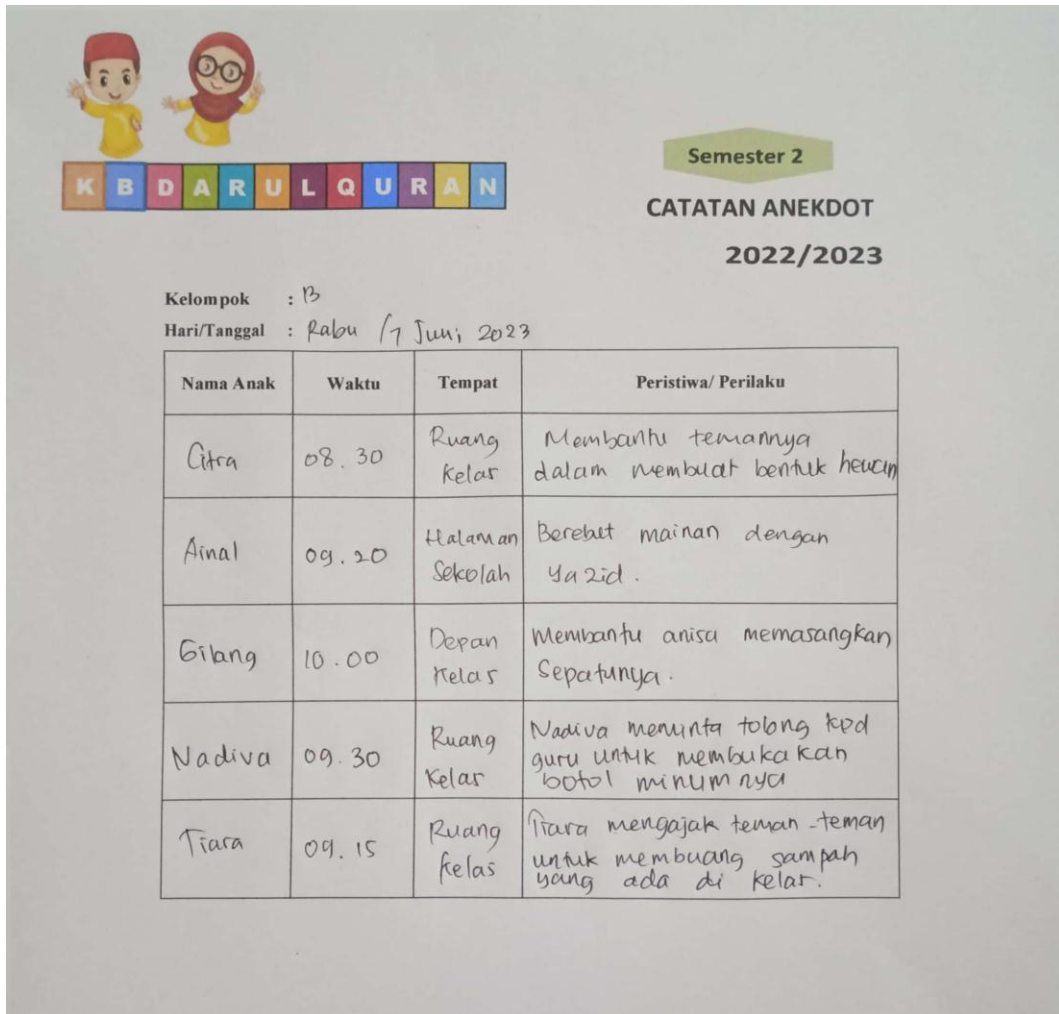 KB DARUL QURAN
Semester 2
CATATAN ANEKDOT
2022/2023
Kelompok : B
Hari/Tanggal : Rabu /7 Juni 2023
Nama Anak Waktu Tempat Peristiwa/ Perilaku
Citra 08.30 Ruang Kelas Membantu temannya
dalam membuat bentuk hewan
Ainal 09.20 Halaman Sekolah Berebut mainan dengan
Yazid.
Gilang 10.00 Depan Kelas Membantu anisa memasangkan
Sepatunya.
Nadiva 09.30 Ruang Kelas Nadiva meminta tolong kpd
guru untuk membukakan
botol minumnya
Tiara 09.15 Ruang Kelas Tiara mengajak teman-teman
untuk membuang sampah
yang ada di kelas.